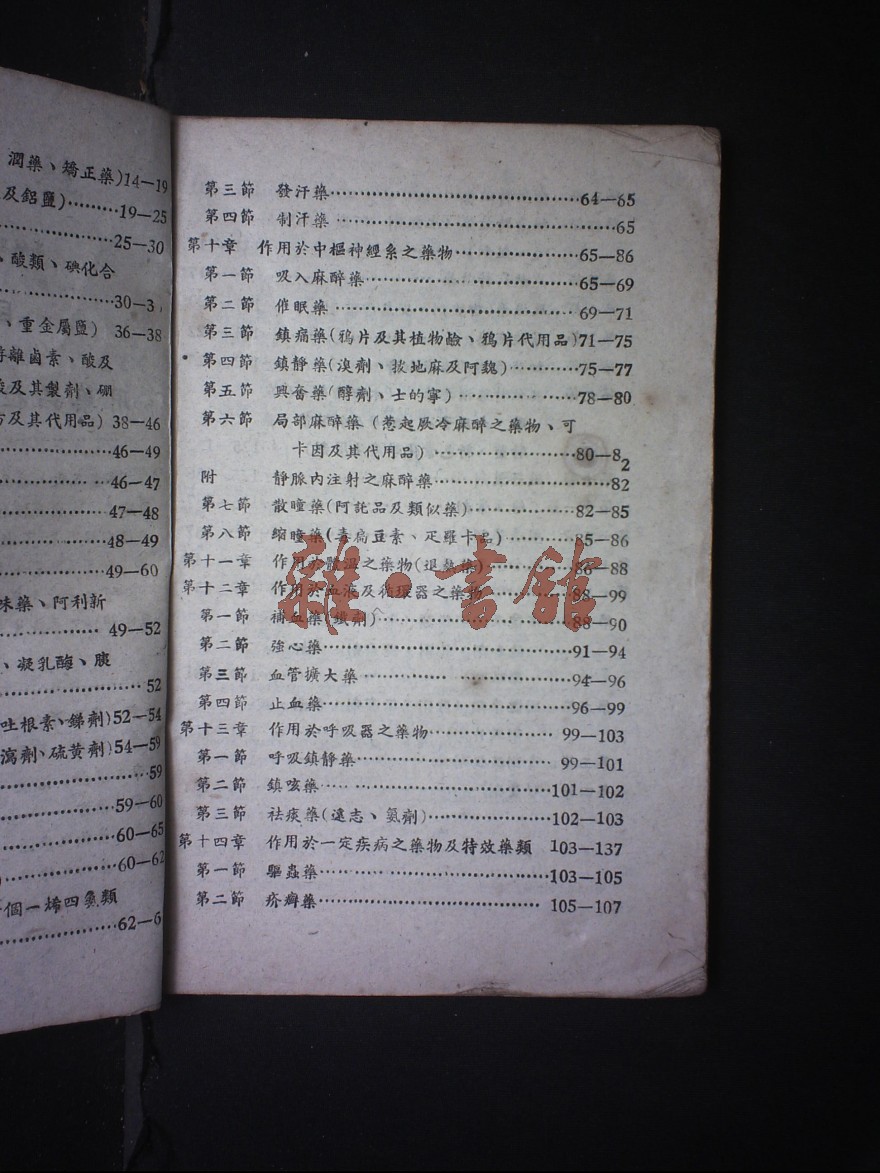 潤藥、矯正藥)14—19
及鋁鹽)………19—25
…………25—30
、酸類、碘化合
…………30—3
、重金屬鹽) 36—38
游離鹵素、酸及
及其製劑、硼
及其代用品) 38—46
…………46—49
………… 46—47
…………47—48
…………48—49
…………49—60
味藥、阿利新
………… 49—52
、凝乳酶、胰
…………52
吐根素、銻劑)52—54
瀉劑、硫黄劑)54—59
…………59
…………59—60
…………60—65
…………60—62
個一烯四氮類
…………62—6
第三節 發汗藥…………64—65
第四節 制汗藥…………65
第十章 作用於中樞神經系之藥物…………65—86
第一節 吸入麻醉藥…………65—69
第二節 催眠藥…………69—71
第三節 鎮痛藥(鴉片及其植物鹼、鴉片代用品)71—75
第四節 鎮靜藥(溴劑、拔地麻及阿魏)…………75—77
第五節 興奮藥(醇劑、士的寧)…………78—80
第六節 局部麻醉藥 (惹起厥冷麻醉之藥物、可
卡因及其代用品)…………80—82
附 靜脈內注射之麻醉藥…………82
第七節 散瞳藥(阿託品及類似藥)…………82—85
第八節 縮瞳藥(毒扁豆素、疋羅卡品)…………85—86
第十一章 作用於散溫之藥物(退熱藥)…………86—88
第十二章 作用於血液及循環器之藥物…………88—99
第一節 補血藥(鐵劑)…………88—90
第二節 強心藥…………91—94
第三節 血管擴大藥…………94—96
第四節 止血藥…………96—99
第十三章 作用於呼吸器之藥物…………99—103
第一節 呼吸鎮靜藥…………99—101
第二節 鎮咳藥…………101—102
第三節 祛痰藥(遠志、氨劑)…………102—103
第十四章 作用於一定疾病之藥物及特效藥類 103—137
第一節 驅蟲藥…………103—105
第二節 疥癬藥…………105—107
雜·書館